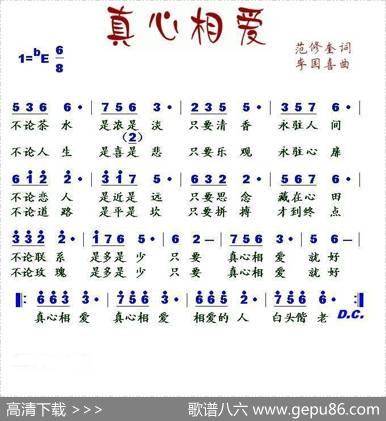 真心相爱
1=ᵇE 6/8
范修奎词
李国喜曲
5 3 6 6· | 7 5 6 3· | 2 3 5 5· | 3 5 7 6·
不论茶水 是浓是淡 只要清香 永驻人间
(2)
不论人生 是喜是悲 只要乐观 永驻心扉
6 1 2 2· | 3 1 7 5· | 6 1 2 3· | 2 1 7 6·
不论恋人 是近是远 只要思念 藏在心田
不论道路 是平是坎 只要拼搏 才到终点
3 3 2 2· | 1 7 6 5· | 6 2 – | 7 5 6 3· | 6 6 –
不论联系 是多是少 只要 真心相爱 就好
不论玫瑰 是多是少 只要 真心相爱 就好
‖: 6 6 3 3· | 7 5 6 3· | 6 6 5 2· | 7 5 6 6· :‖
真心相爱 真心相爱 相爱的人 白头偕老 D.C.
高清下载 >>>
歌谱八六 www.gepu86.com